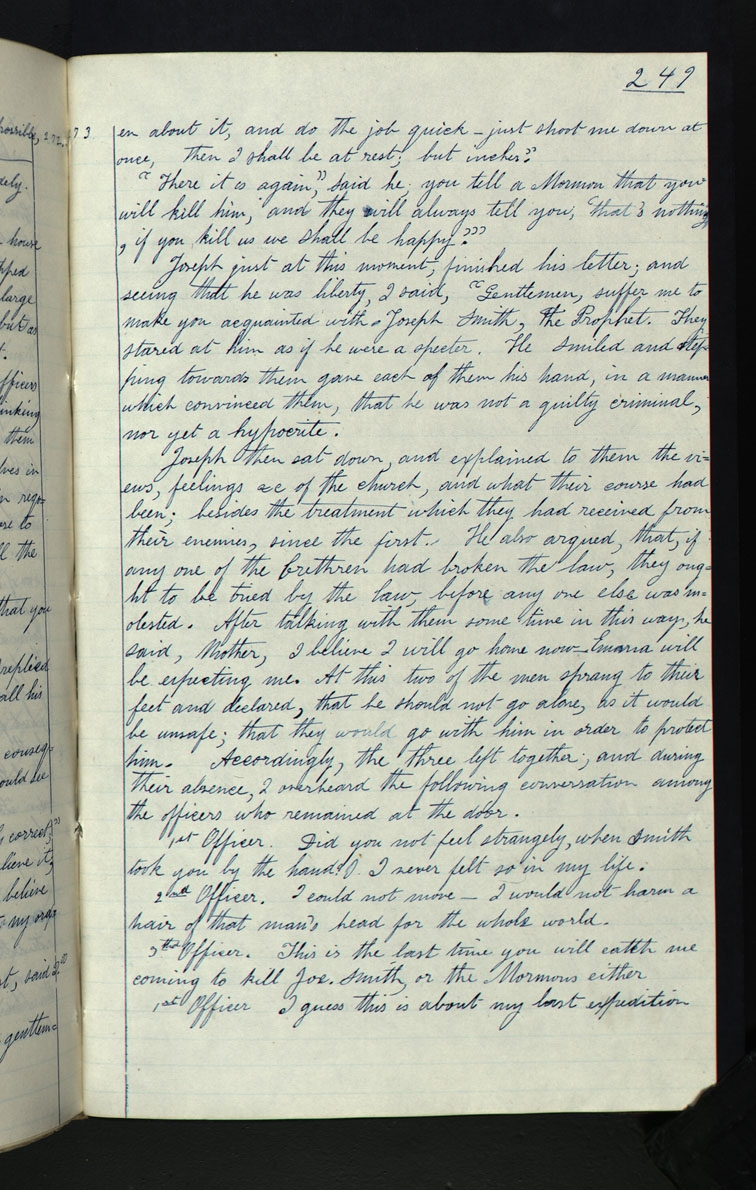 249
273.
en about it, and do the job quick – just shoot me down at
once, then I shall be at rest; but inches?"
"There it is again," said he; you tell a Mormon that you
will kill him, and they will always tell you, 'that's nothing
, if you kill us we shall be happy.'"
Joseph just at this moment, finished his letter; and
seeing that he was liberty, I said, "Gentlemen, suffer me to
make you acquainted with Joseph Smith, the Prophet. They
stared at him as if he were a specter. He smiled and step-
ping towards them gave each of them his hand, in a manner
which convinced them, that he was not a guilty criminal,
nor yet a hypocrite.
Joseph then sat down, and explained to them the vi=
ews, feelings &c of the church, and what their course had
been; besides the treatment which they had received from
their enemies, since the first. He also argued, that, if
any one of the brethren had broken the law, they oug=
ht to be tried by the law, before any one else was m=
olested. After talking with them some time in this way, he
said, Mother, I believe I will go home now – Emma will
be expecting me. At this two of the men sprang to their
feet and declared, that he should not go alone, as it would
be unsafe; that they would go with him in order to protect
him. Accordingly, the three left together; and during
their absence, I overheard the following conversation among
the officers who remained at the door.
1st Officer. Did you not feel strangely, when Smith
took you by the hand? I never felt so in my life.
2nd Officer. I could not move – I would not harm a
hair of that man's head for the whole world.
3rd Officer. This is the last time you will catch me
coming to kill Joe. Smith, or the Mormons either
1st Officer I guess this is about my last expedition
possible, 272.
dely.
house
pped
large
but as
officers
inking
them
lves in
ore to
ll the
that you
replied
all his
conseq=
ould see
y correct,
lieve it,
believe
to my
st, said
gentlem=